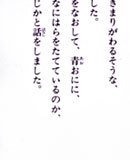 きまりがわるそうな、
した。
をなおして、青おにに、
なにはらをたてているのか、
じかと話をしました。